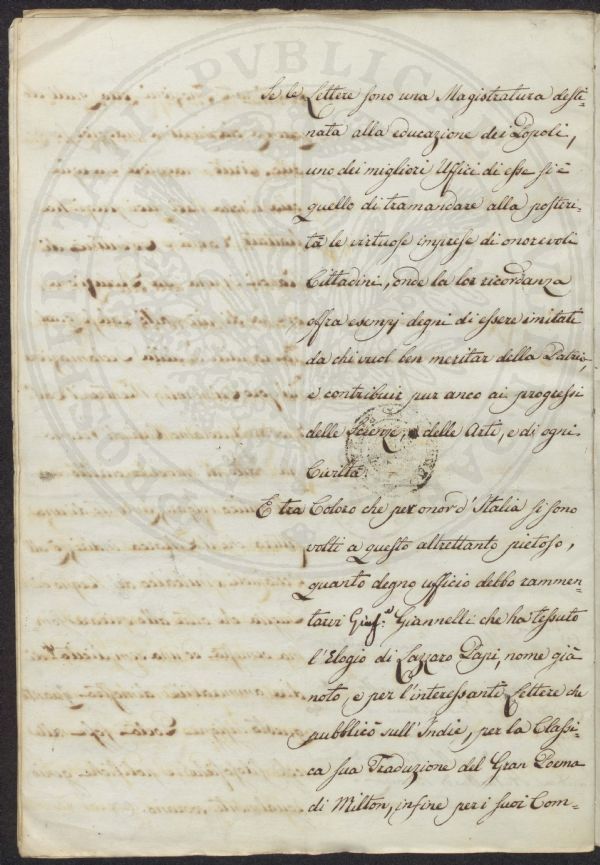 Se le Lettere sono una Magistratura desti=
nata alla educazione dei Popoli,
uno dei migliori Uffici di esse si è
quello di tramandare alla posteri=
tà le virtuose imprese di onorevoli
Cittadini, onde la lor ricordanza
offra esempj degni di essere imitati
da chi vuol ben meritar della Patria,
e contribuir pur anco ai progressi
delle Scienze, e delle Arti, e di ogni
Civiltà.
E tra Coloro che per onor d'Italia si sono
volti a questo altrettanto pietoso,
quanto degno ufficio debbo rammen=
tarvi Giannelli che ha tessuto
l'Elogio di Lazzaro Papi, nome già
noto, e per l'interessanti Lettere che
pubblicò sull'Indie, per la Classi=
ca sua Traduzione del Gran Poema
di Milton, infine per i suoi Com=